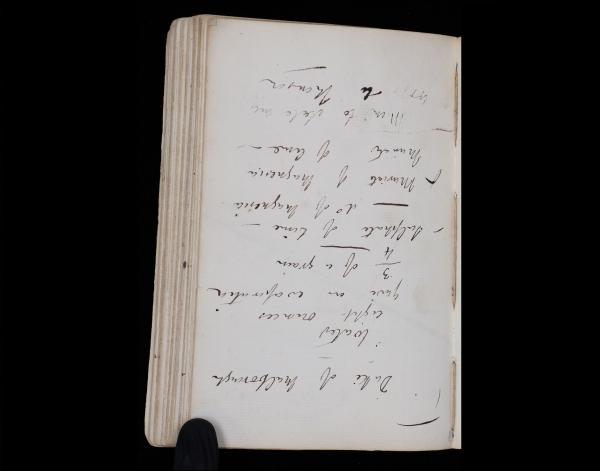 Duke of Malborough
Water
eight ounces
gave on evaporation
3/4 of a grain
Sulphate of Lime —
— do of Magnesia
Muriate of Magnesia
Muriate of Lime —
to